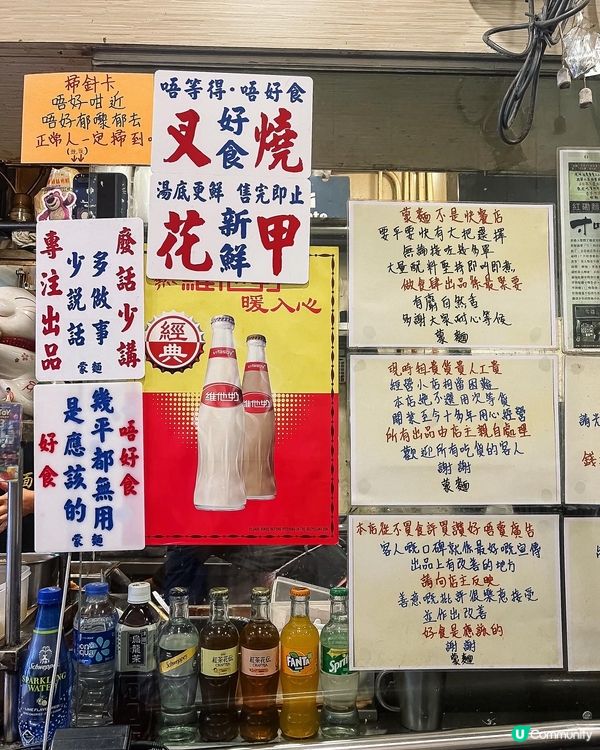 掃針卡
唔好咁近
唔好郁嚟郁去
正常人一定掃到。
唔等得·唔好食
叉燒
好食
湯底更鮮 售完即止
花甲
新鮮
麼話少講
多做事
少說話
專注出品
蒙麵
唔好食
幾平都無用
是應該的
好食
蒙麵
暖入心
經典
vitasoy
維他奶
蒙麵不是快餐店
要平要快有大把選擇
大量配料至持即叫即煮。
做食肆出品係最緊要
有麝自然香
多謝大家耐心等候
蒙麵
現時租貴貨貴人工貴
經營小店相當困難
本店絶不選用次等貨
開業至今十多年用心經營
所有出品由店主親自處理
歡迎所有吃貨的客人
謝謝
蒙麵
本店從不買食評買讚好唔賣廣告
客人嘅口碑就係最好嘅宣傳
出品上有改善的地方
請向店主反映
善意嘅批評很樂意接受
並作出改善
好食是應該的
謝謝
蒙麵
Schweppes
SPARKLING
WATER
bonaqua
烏龍茶
Schweppes
紅茶花伝
紅茶花伝
FANTA
Sprite
U Community